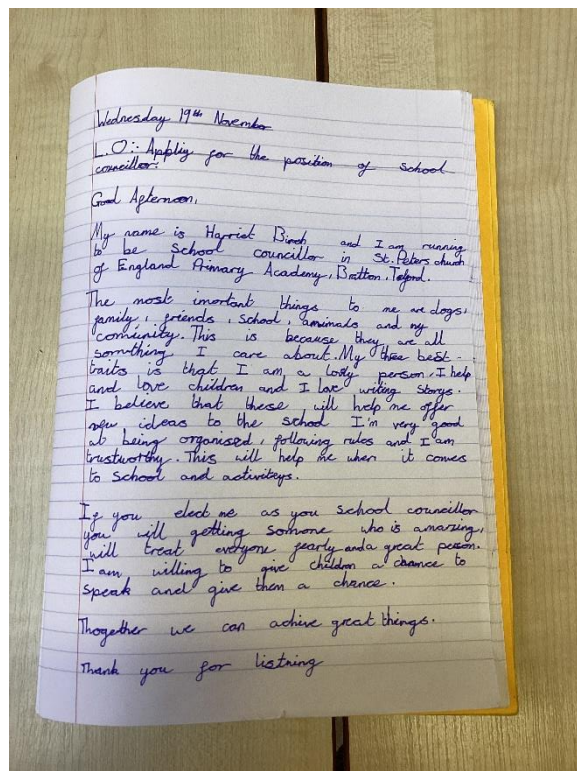 Wednesday 19th November
L.O:- Appliy for the position of school
councillor.
Good Afternoon,
My name is Harriet Birch and I am running
to be School councillor in St.Peters church
of England Primary Academy, Bratton, Telford.
The most imortant things to me are dogs,
family, friends, school, amimals and my
comunity. This is because they are all
something I care about. My three best
traits is that I am a lovly person, I help
and love children and I love writing storys.
I believe that these will help me offer
new ideas to the school I'm very good
at being organised, following rules and I am
trustworthy. This will help me when it comes
to School and activiteys.
If you elect me as you school councillor
you will getting somone who is amazing,
will treat everyone fearly and a great person.
I am willing to give children a chance to
speak and give them a chance.
Thogether we can achive great things.
Thank you for listning